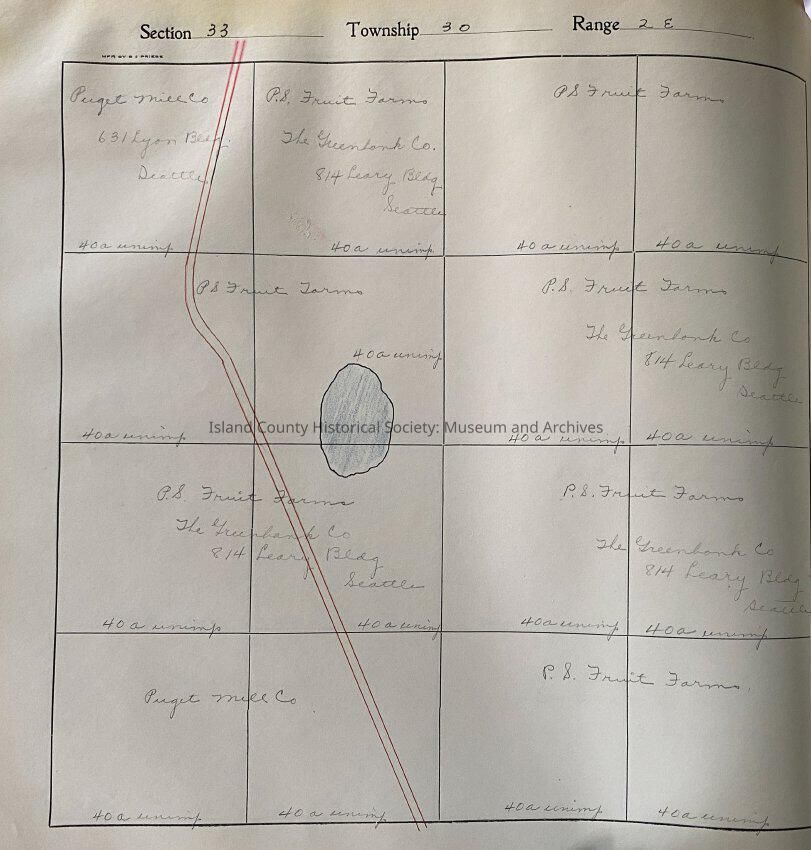 Section 33 Township 30 Range 2 E
Puget Mill Co
631 Lyon Bldg.
Seattle
40a unimp.
P.S. Fruit Farms
The Greenbank Co.
814 Leary Bldg
Seattle
40a unimp.
PS Fruit Farms
40a unimp.
40a unimp.
PS Fruit Farms
40a unimp
40a unimp.
P.S. Fruit Farms
The Greenbank Co
814 Leary Bldg
Seattle
40a unimp.
40a unimp.
Island County Historical Society: Museum and Archives
P.S. Fruit Farms
The Greenbank Co
814 Leary Bldg
Seattle
40a unimp.
40a unimp
P.S. Fruit Farms
The Greenbank Co
814 Leary Bldg
Seattle
40a unimp.
40a unimp.
Puget Mill Co
40a unimp.
40a unimp.
P.S. Fruit Farms.
40a unimp.
40a unimp.